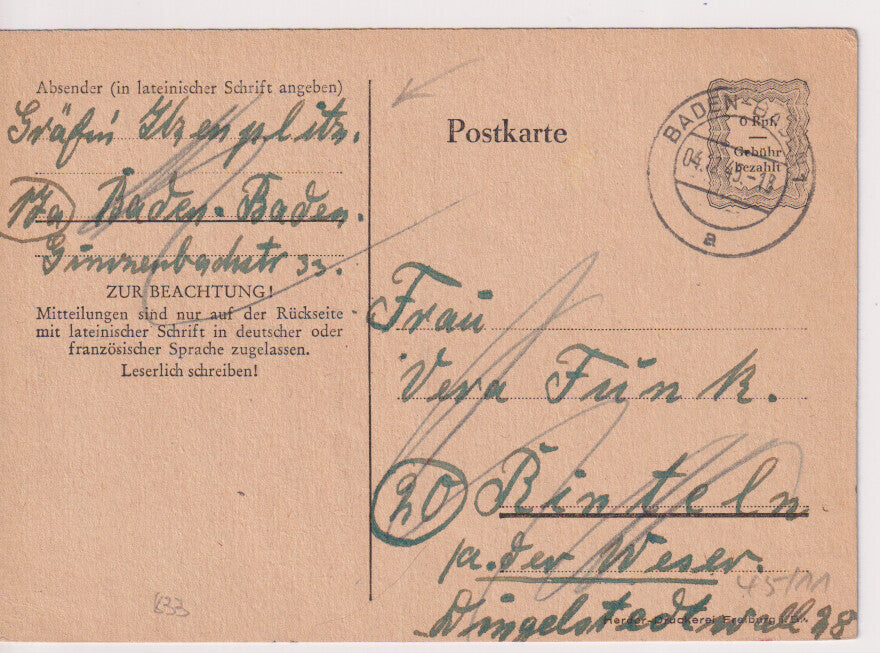 Absender (in lateinischer Schrift angeben)
Gräfin Itzenplitz.
17a Baden-Baden.
Gunzenbachstr 33.
ZUR BEACHTUNG!
Mitteilungen sind nur auf der Rückseite
mit lateinischer Schrift in deutscher oder
französischer Sprache zugelassen.
Leserlich schreiben!
633
Postkarte
BADEN-BADEN 1
04. 45.-18
a
6 Rpf.
Gebühr
bezahlt
Frau
Vera Funk.
20 Rinteln
a. der Weser.
Dingelstedtwall 28
45/11
Herder-Druckerei Freiburg i. Br.